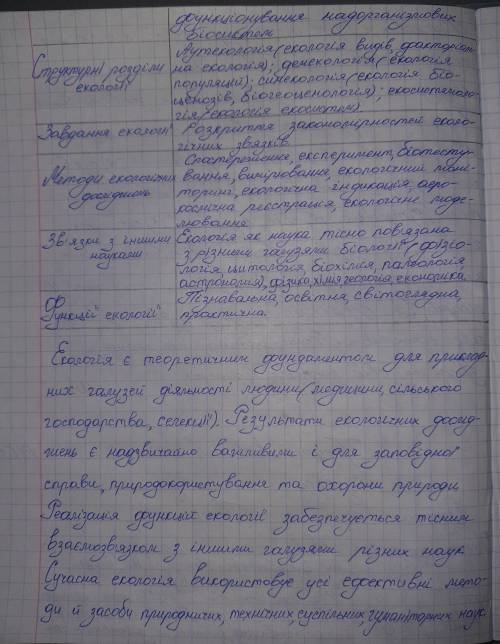 функціонування надорганізмових
біосистем
Структурні розділи екології
Аутекологія (екологія видів, факторіаль-
на екологія); демекологія (екологія
популяцій); синекологія (екологія біо-
ценозів, біогеоценологія); екосистемоло-
гія (екологія екосистем)
Завдання екології
Розкриття закономірностей еколо-
гічних зв'язків
Методи екологічних
досліджень
Спостереження, експеримент, біотесту-
вання, вимірювання, екологічний моні-
торинг, екологічна індикація, аеро-
космічна реєстрація, екологічне моде-
лювання
Зв'язки з іншими
науками
Екологія як наука тісно пов'язана
з різними галузями біології (фізіо-
логія, цитологія, біохімія, палеологія
астрономія), фізика, хімія геологія, економіка.
Функції екології
Пізнавальна, освітня, світоглядна,
практична.
Екологія є теоретичним фундаментом для приклад-
них галузей діяльності людини (медицини, сільського
господарства, селекції). Результати екологічних дослід-
жень є надзвичайно важливими і для заповідної
справи, природокористування та охорони природи
Реалізація функцій екології забезпечується тісним
взаємозв'язком з іншими галузями різних наук
Сучасна екологія використовує усі ефективні мето-
ди й засоби природничих, технічних, суспільних, гуманіторних наук